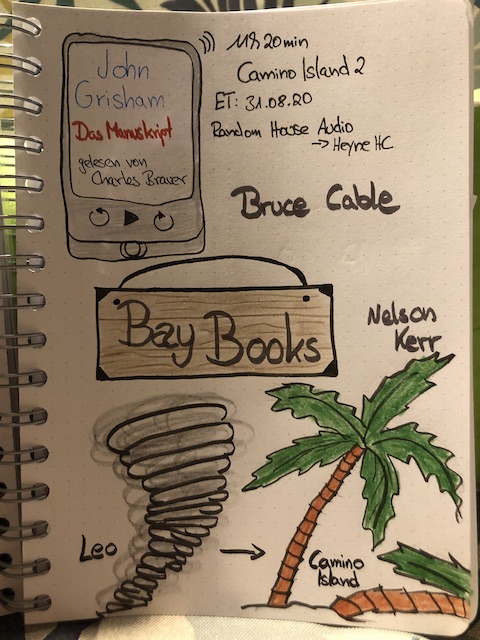 John
Grisham
Das Manuskript
gelesen von
Charles Brauer
11h 20min
Camino Island 2
ET: 31.08.20
Random House Audio
→ Heyne HC
Bruce Cable
Bay Books
Nelson
Kerr
Leo
Camino
Island